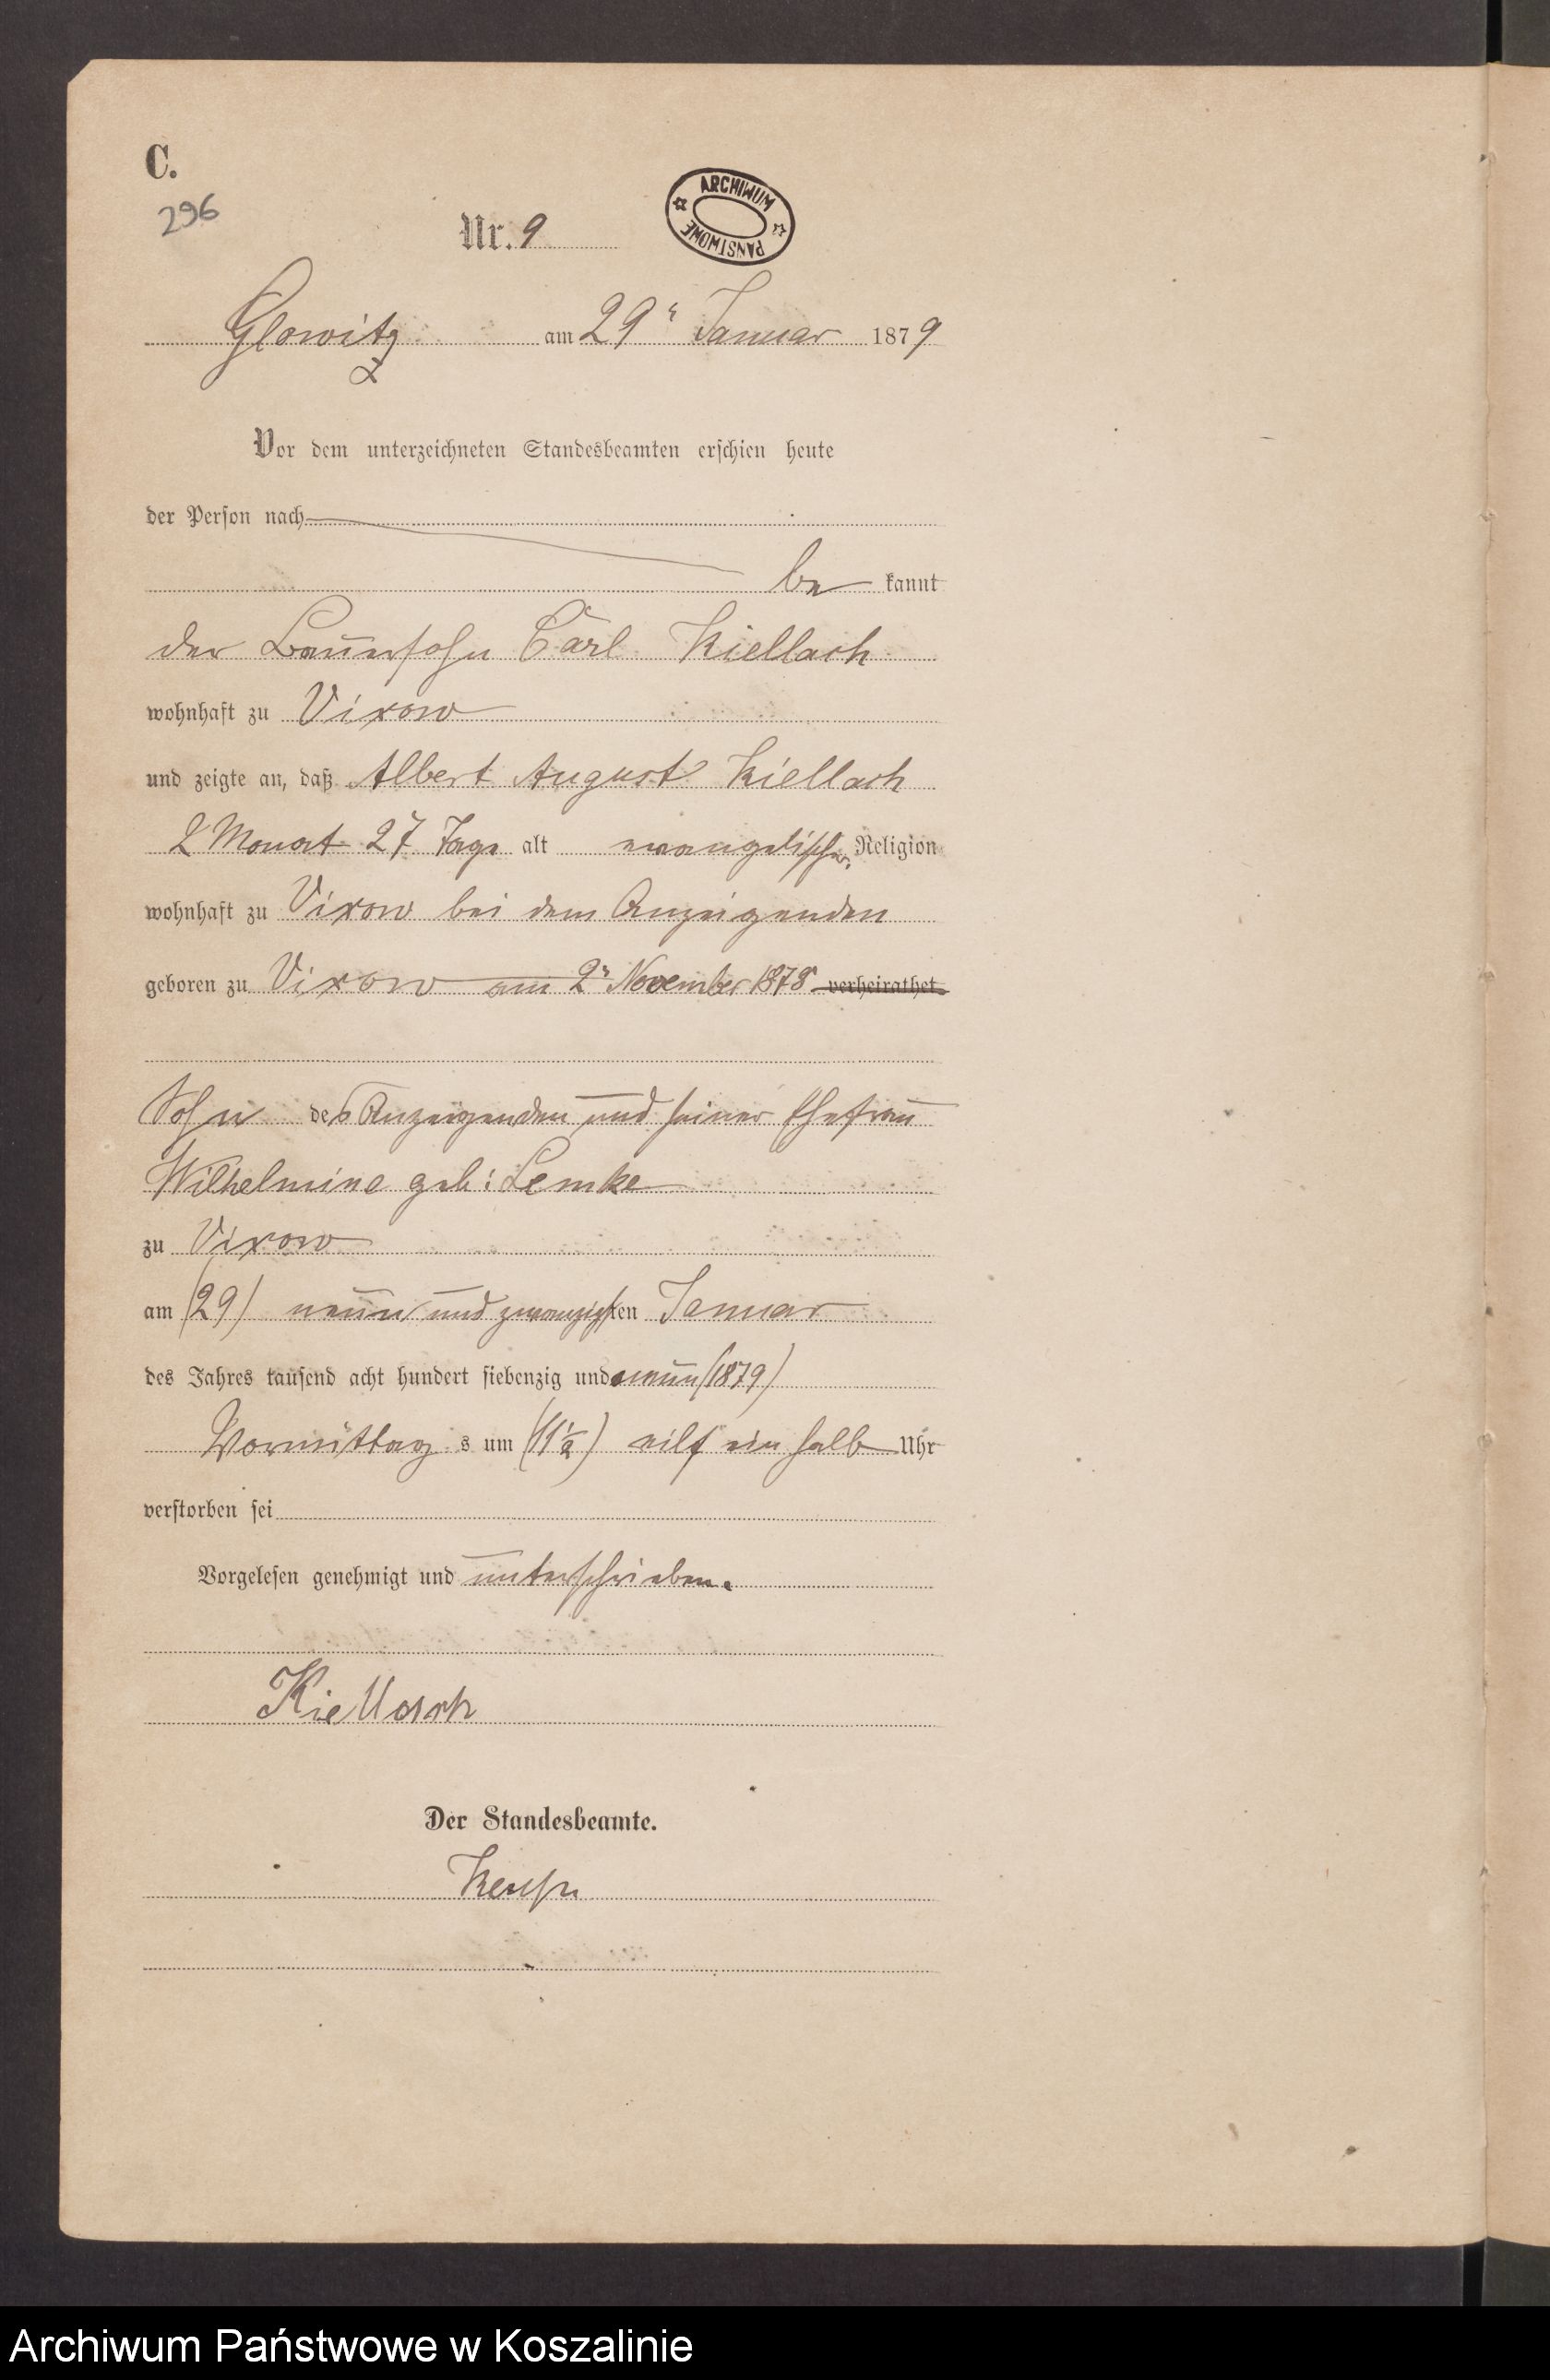 C.
296
Nr. 9
ARCHIWUM PAŃSTWOWE
Glowitz am 29n Januar 1879
Vor dem unterzeichneten Standesbeamten erschien heute
der Person nach
be kannt
der Bauersohn Carl Kiellach
wohnhaft zu Vixow
und zeigte an, daß Albert August Kiellach
2 Monat 27 Tage alt evangelischer Religion
wohnhaft zu Vixow bei dem Anzeigenden
geboren zu Vixow am 2n November 1878 verheirathet
Sohn des Anzeigenden und seiner Ehefrau
Wilhelmine geb: Lemke
zu Vixow
am (29) neun und zwanzigsten Januar
des Jahres tausend acht hundert siebenzig und neun (1879)
Vormittag s um (11½) eilf ein halb Uhr
verstorben sei
Vorgelesen genehmigt und unterschrieben.
Kiellach
Der Standesbeamte.
Archiwum Państwowe w Koszalinie